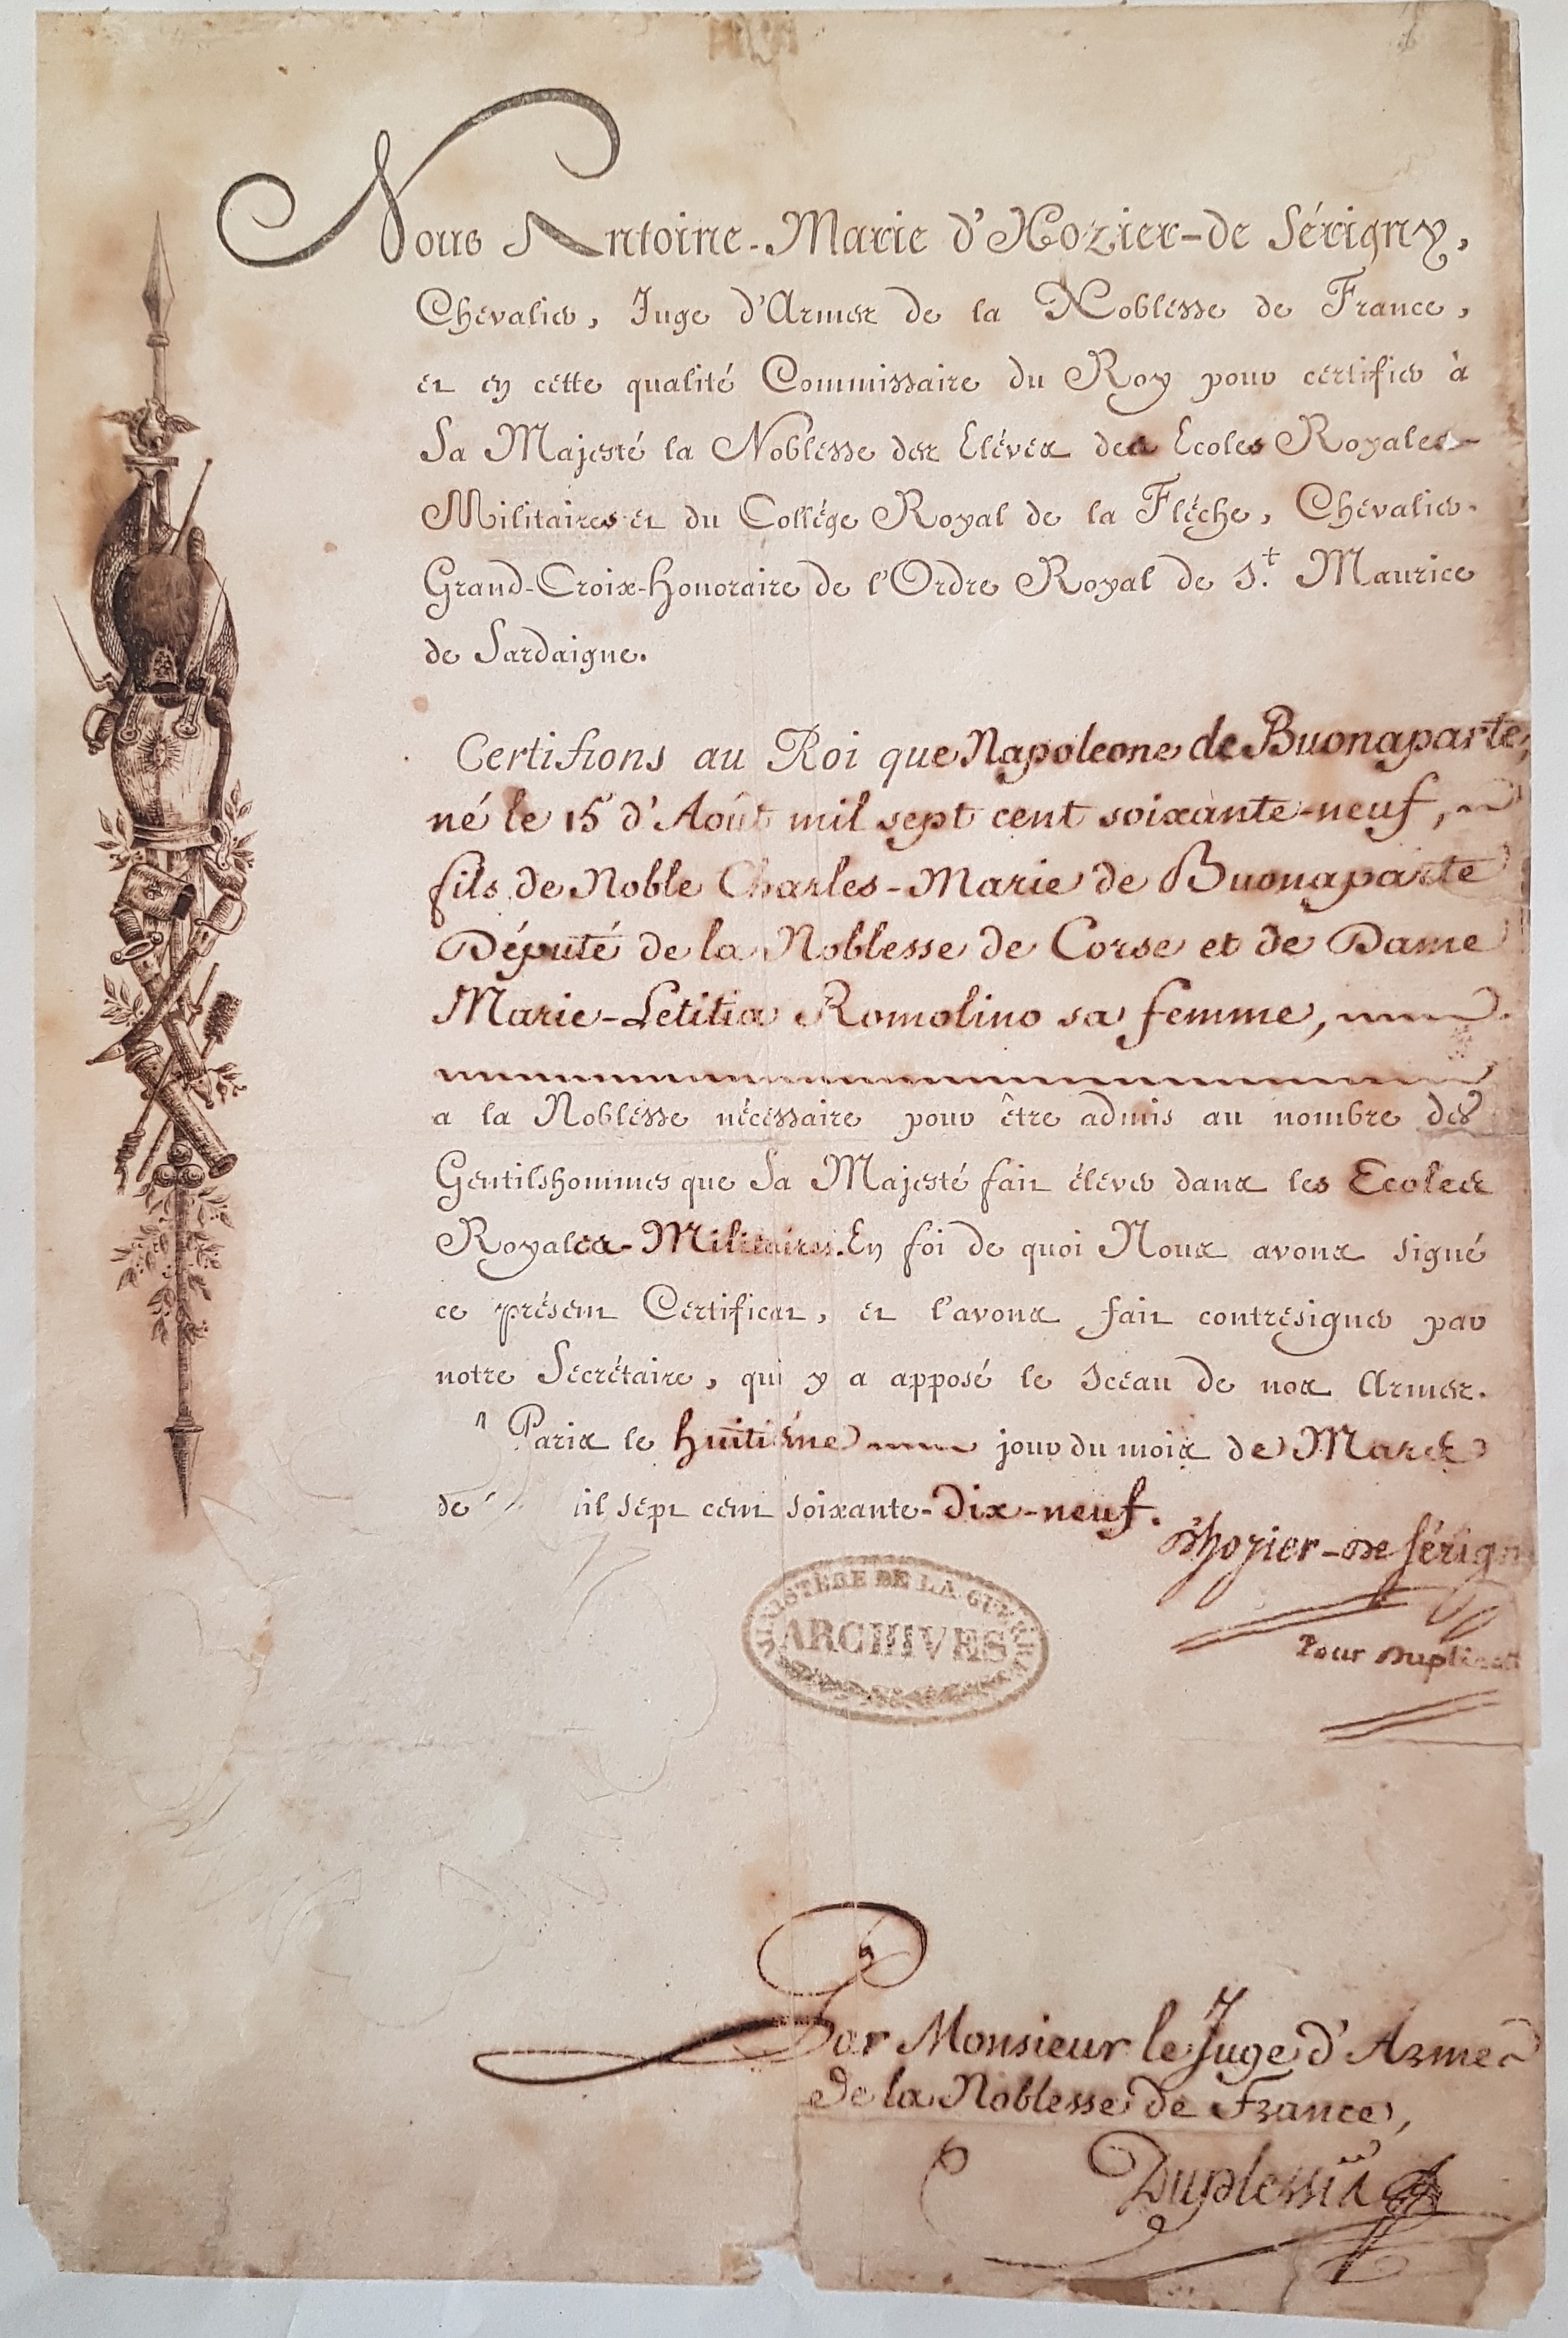 Nous Antoine-Marie d'Hozier-de Sérigny,
Chevalier, Juge d'Armes de la Noblesse de France,
et en cette qualité Commissaire du Roy pour certifier à
Sa Majesté la Noblesse des Elèves des Ecoles Royales-
Militaires et du Collège Royal de la Flèche, Chevalier-
Grand-Croix-Honoraire de l'Ordre Royal de S.t Maurice
de Sardaigne.
Certifions au Roi que Napoleone de Buonaparte,
né le 15 d'Août mil sept cent soixante-neuf,
fils de Noble Charles-Marie de Buonaparte
Député de la Noblesse de Corse et de Dame
Marie-Letitia Romolino sa femme,
a la Noblesse nécessaire pour être admis au nombre des
Gentilshommes que Sa Majesté fait élever dans les Ecoles
Royales-Militaires. En foi de quoi Nous avons signé
ce présent Certificat, et l'avons fait contresigner par
notre Secrétaire, qui y a apposé le sceau de nos Armes.
Paris le huitième jour du mois de Mars
de il sept cent soixante-dix-neuf.
d'hozier-de Sérign
MINISTÈRE DE LA GUERRE
ARCHIVES
Pour Duplicata
Par Monsieur le Juge d'Armes
de la Noblesse de France,
Duplessis